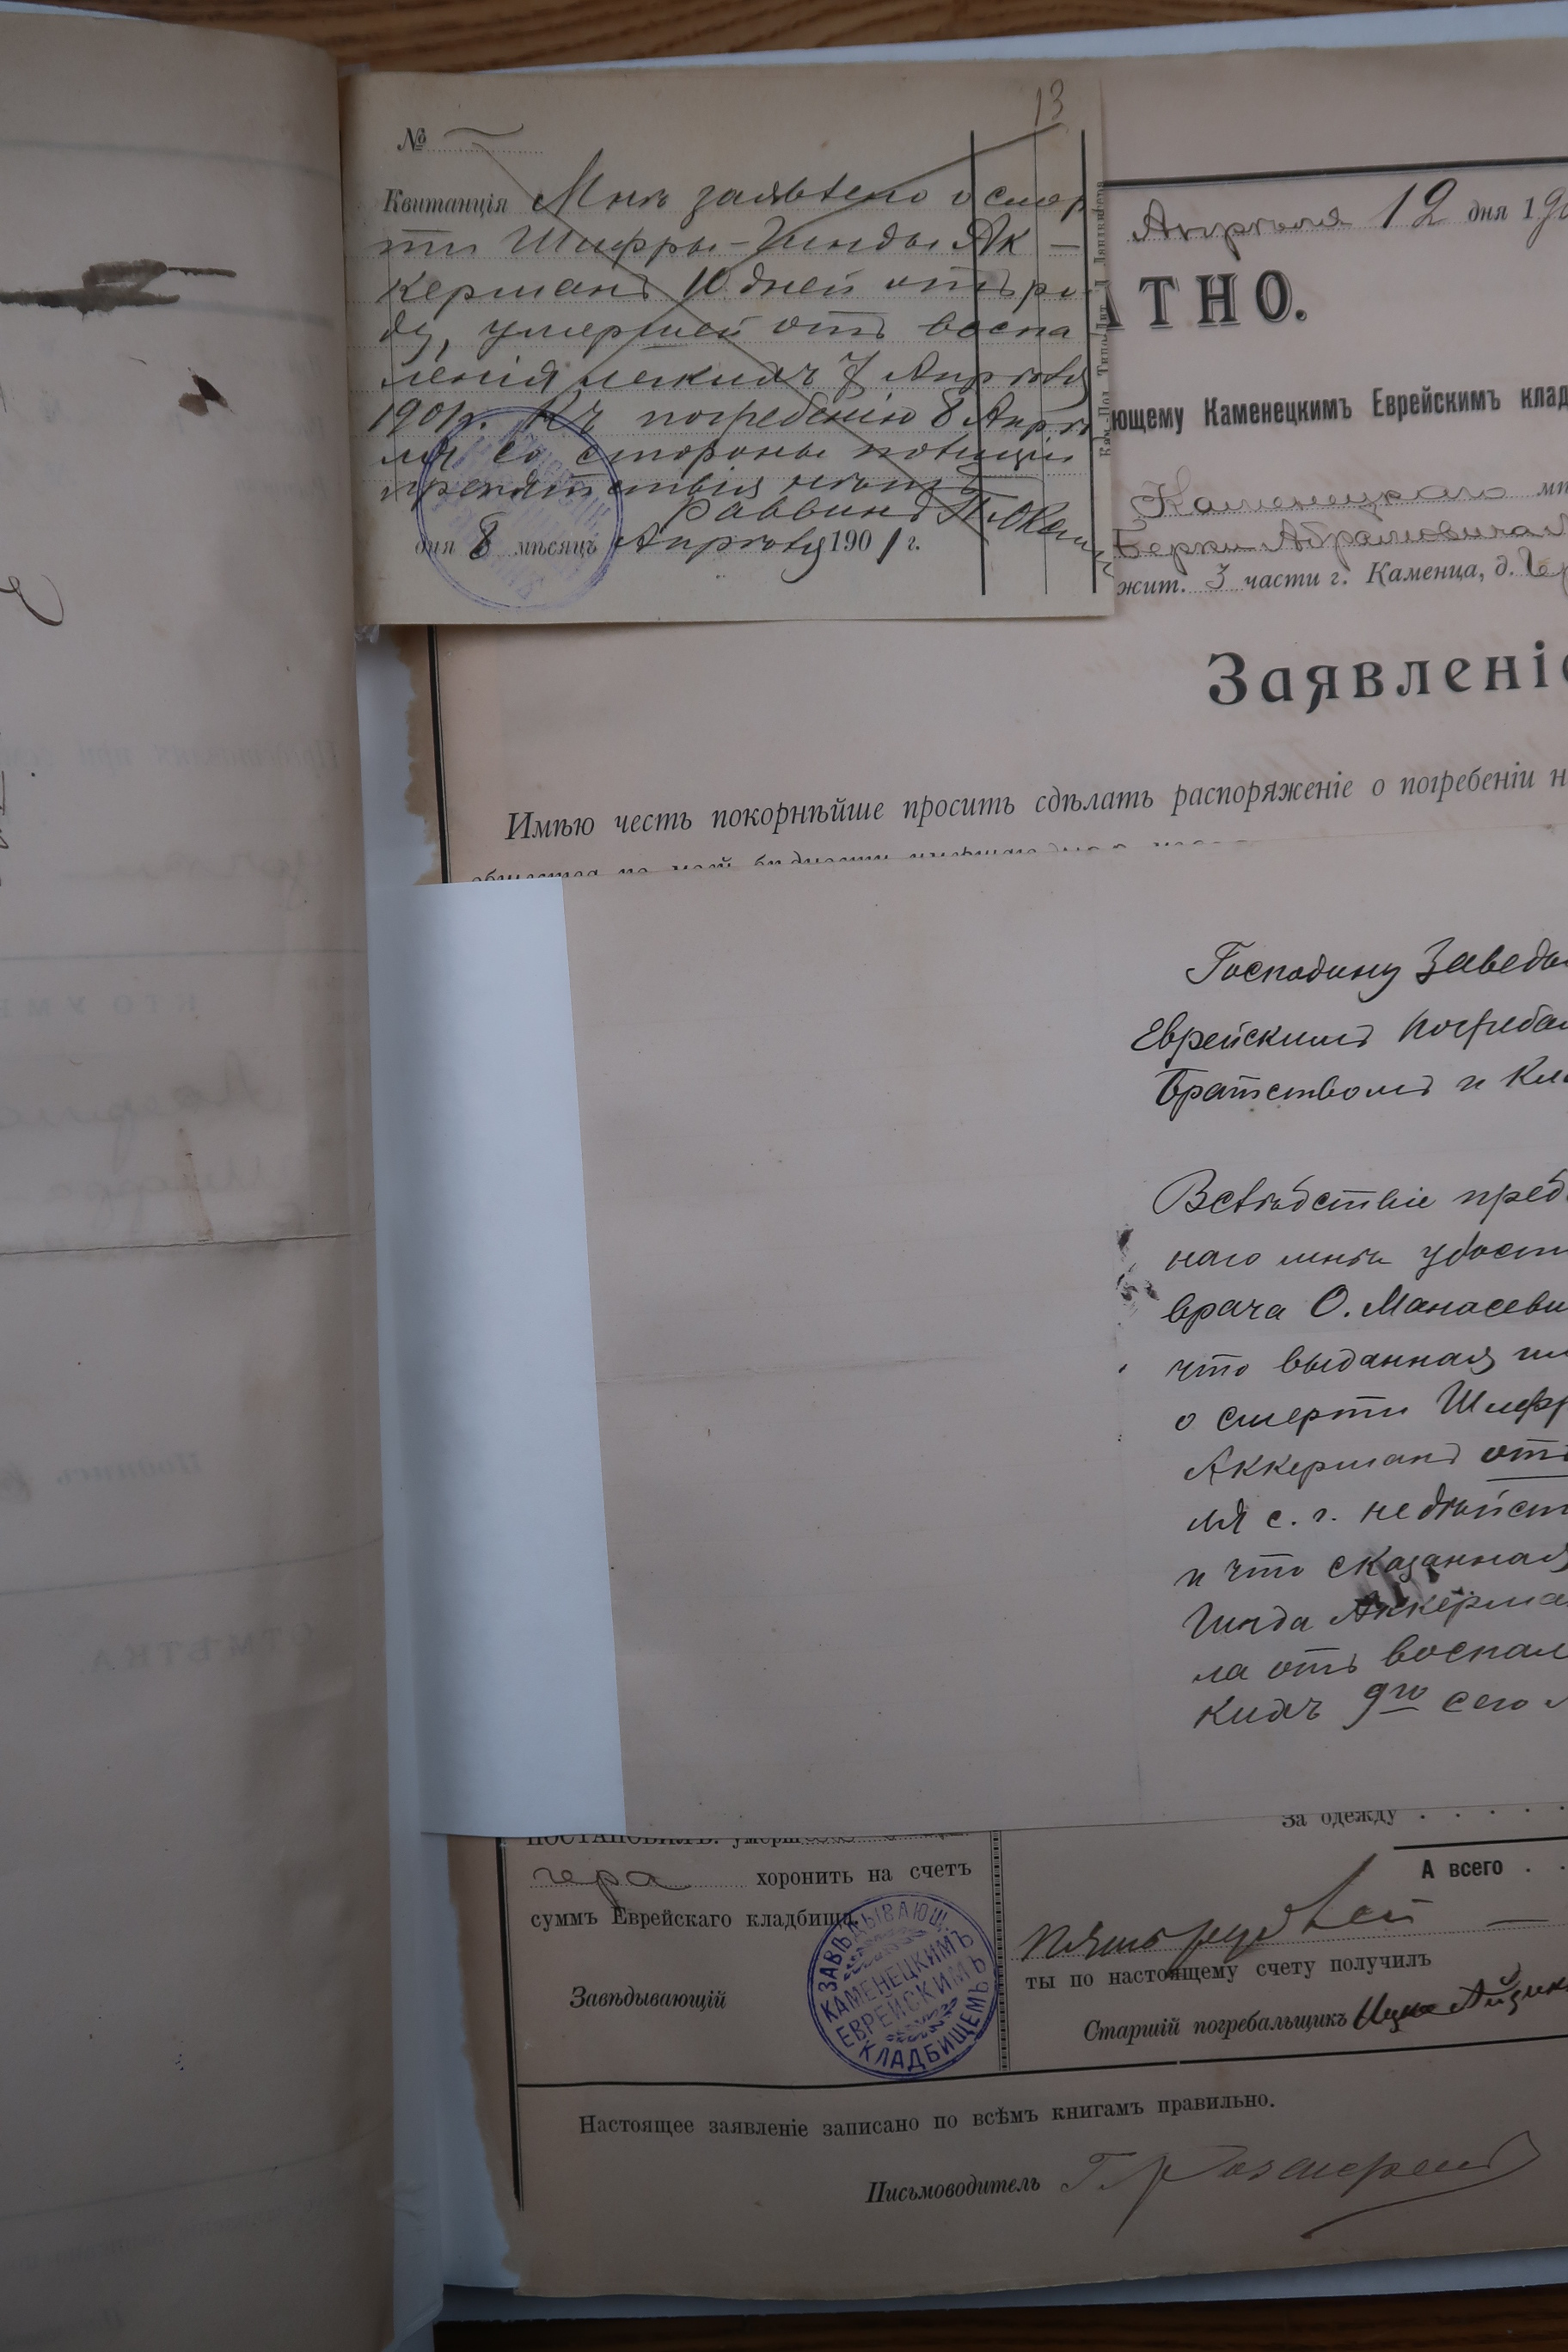 13
№
Квитанція Мнѣ заявлено о смер
ти Шифры-Гинды Ак
керманъ 10 дней отъ ро
ду, умершей отъ воспа
ленія легкихъ 7 Апрѣля
1901 г. Къ погребенію 8 Апрѣ
ля со стороны полиціи
препятствія нѣтъ
Раввинъ
дня 8 мѣсяцъ Апрѣля 1901 г.
Апрѣля 12 дня 190
АТНО.
ющему Каменецкимъ Еврейскимъ клад
Каменецкаго мѣ
Берки Абрамовича
жит. 3 части г. Каменца, д.
Заявленіе
Имѣю честь покорнѣйше просить сдѣлать распоряженіе о погребеніи н
общества по моей бѣдности умершаго
Господину Заведы
Еврейскимъ погребал
Братствомъ и Кла
Вслѣдствіе пред
наго мнѣ удост
врача О. Манасеви
что выданная им
о смерти Шифр
Аккерманъ отъ
ля с. г. недѣйст
и что сказанная
Гинда Аккерма
ла отъ воспал
кихъ 9го сего
За одежду . . . . .
А всего . .
умерш
чера хоронить на счетъ
суммъ Еврейскаго кладбища.
Завѣдывающій
ЗАВѢДЫВАЮЩ.
КАМЕНЕЦКИМЪ
ЕВРЕЙСКИМЪ
КЛАДБИЩЕМЪ
Пять рублей —
ты по настоящему счету получилъ
Старшій погребальщикъ
Настоящее заявленіе записано по всѣмъ книгамъ правильно.
Письмоводитель